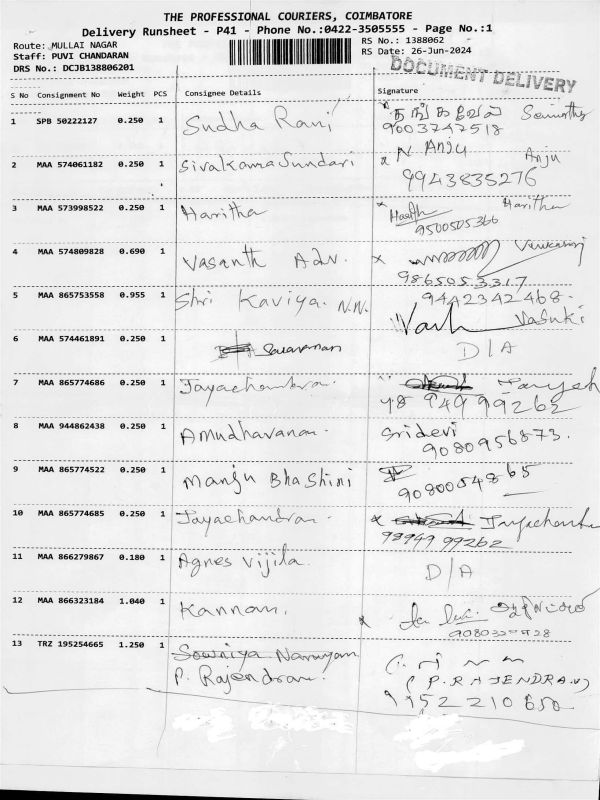 THE PROFESSIONAL COURIERS, COIMBATORE
Delivery Runsheet - P41 - Phone No.:0422-3505555 - Page No.:1
Route: MULLAI NAGAR
Staff: PUVI CHANDARAN
DRS No.: DCJB138806201
RS No.: 1388062
RS Date: 26-Jun-2024
DOCUMENT DELIVERY
S No Consignment No Weight PCS Consignee Details Signature
1 SPB 50222127 0.250 1 Sudha Rani
9003747518
2 MAA 574061182 0.250 1 Sivakama Sundari N Anju Anju
9943835276
3 MAA 573998522 0.250 1 Haritha Haritha
9500505366
4 MAA 574809828 0.690 1 Vasanth Adv.
9865053317
5 MAA 865753558 0.955 1 Shri Kaviya. N.N. 9442342468.
Vasuki
6 MAA 574461891 0.250 1 Saravanan D/A
7 MAA 865774686 0.250 1 Jayachandran.
98949 99262
8 MAA 944862438 0.250 1 Amudhavanan. Sridevi
9080956873.
9 MAA 865774522 0.250 1 Manju Bhashini
9080054865
10 MAA 865774685 0.250 1 Jayachandran. Jayachandra
98949 99262
11 MAA 866279867 0.180 1 Agnes Vijila. D/A
12 MAA 866323184 1.040 1 Kannan.
13 TRZ 195254665 1.250 1 Sowniya Narayan
P. Rajendran. (P.RAJENDRAN)
9952210650